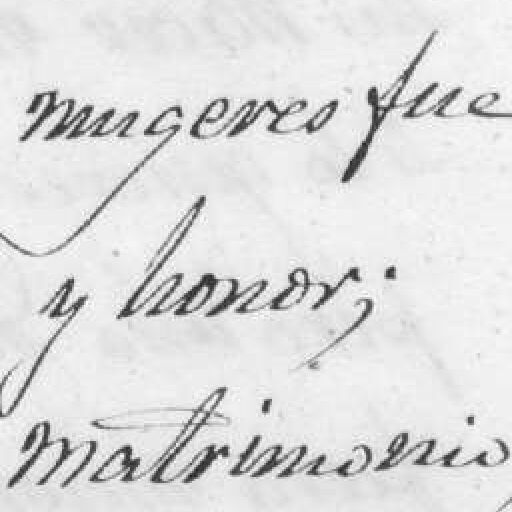 mugeres fue
y honor;
matrimonio